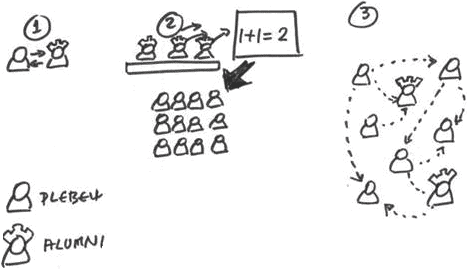 1
2
1+1=2
3
PLEBEU
ALUMNI